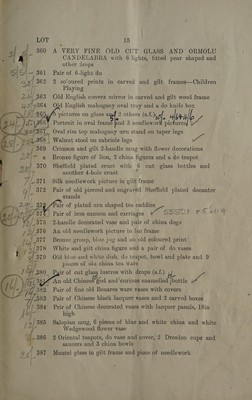 LOT 15
360 A VERY FINE OLD CUT GLASS AND ORMOLU
CANDELABRA with 6 lights, fitted pear shaped and
other drops
361 Pair of 6-light do
362 2 co'oured prints in carved and gilt frames—Children
Playing
363 Old English convex mirror in carved and gilt wood frame
364 Old English mahogany oval tray and a do knife box
pictures on glass and 2 others (a.f.)
366 Portrait in oval frame and 3 needlework pictures
367 Oval rim top mahogany urn stand on taper legs
368 Walnut stool on cabriole legs
369 Crimson and gilt 2-handle mug with flower decorations
a Bronze figure of lion, 2 china figures and a do teapot
370 Sheffield plated cruet with 6 cut glass bottles and
another 4-hole cruet
371 Silk needlework picture in gilt frame
372 Pair of old pierced and engraved Sheffield plated decanter
stands
Pair of plated urn shaped tea caddies
Pair of iron cannon and carriages
375 2-handle decorated vase and pair of china dogs
376 An old needlework picture in fan frame
377 Bronze group, blue jug and an old coloured print
378 White and gilt china figure and a pair of do vases
379 Old blue and white dish, do teapot, bowl and plate and 9
pieces of old china tea ware
380 Pair of cut glass lustres with drops (a.f.)
An old Chinese gist and various enamelled bottle
382 Pair of fine old Benares ware vases with covers
383 Pair of Chinese black lacquer vases and 3 carved boxes
384 Pair of Chinese decorated vases with lacquer panels, 18in
high
385 Salopian mug, 6 pieces of blue and white china and white
Wedgewood flower vase
386 2 Oriental teapots, do vase and cover, 2 Dresden cups and
saucers and 3 china bowls
387 Mantel glass in gilt frame and piece of needlework